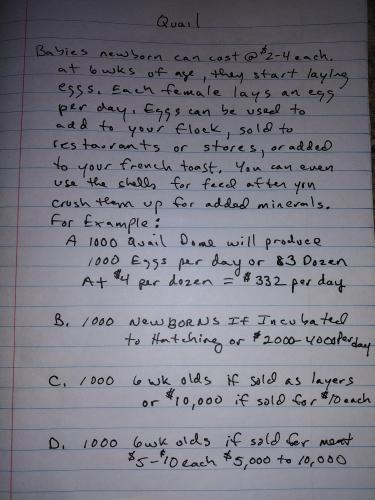 Quail
Babies newborn can cost @ $2-4 each.
at 6wks of age, they start laying
eggs. Each female lays an egg
per day. Eggs can be used to
add to your flock, sold to
restaurants or stores, or added
to your french toast. You can even
use the shells for feed after you
crush them up for added minerals.
For Example:
A 1000 Quail Dome will produce
1000 Eggs per day or 83 Dozen
At $4 per dozen = $332 per day
B. 1000 NewBorns If Incubated
to Hatching or $2000-4000 Per day
C. 1000 6 wk olds if sold as layers
or $10,000 if sold for $10 each
D. 1000 6wk olds if sold for meat
$5-$10 each $5,000 to 10,000